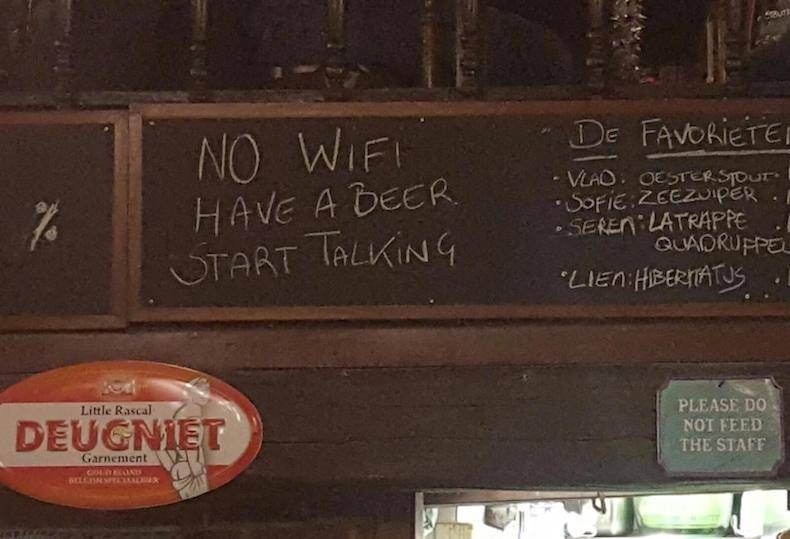 NO WIFI
HAVE A BEER
START TALKING
%
DE FAVORIETE
• VLAD: OESTERSTOUT
• SOFIE: ZEEZUIPER
• SEREN: LATRAPPE
QUADRUPPEL
• LIEN: HIBERNATUS
Little Rascal
DEUGNIET
Garnement
GOUD BLOND
BELGISCH SPECIAALBIER
PLEASE DO
NOT FEED
THE STAFF